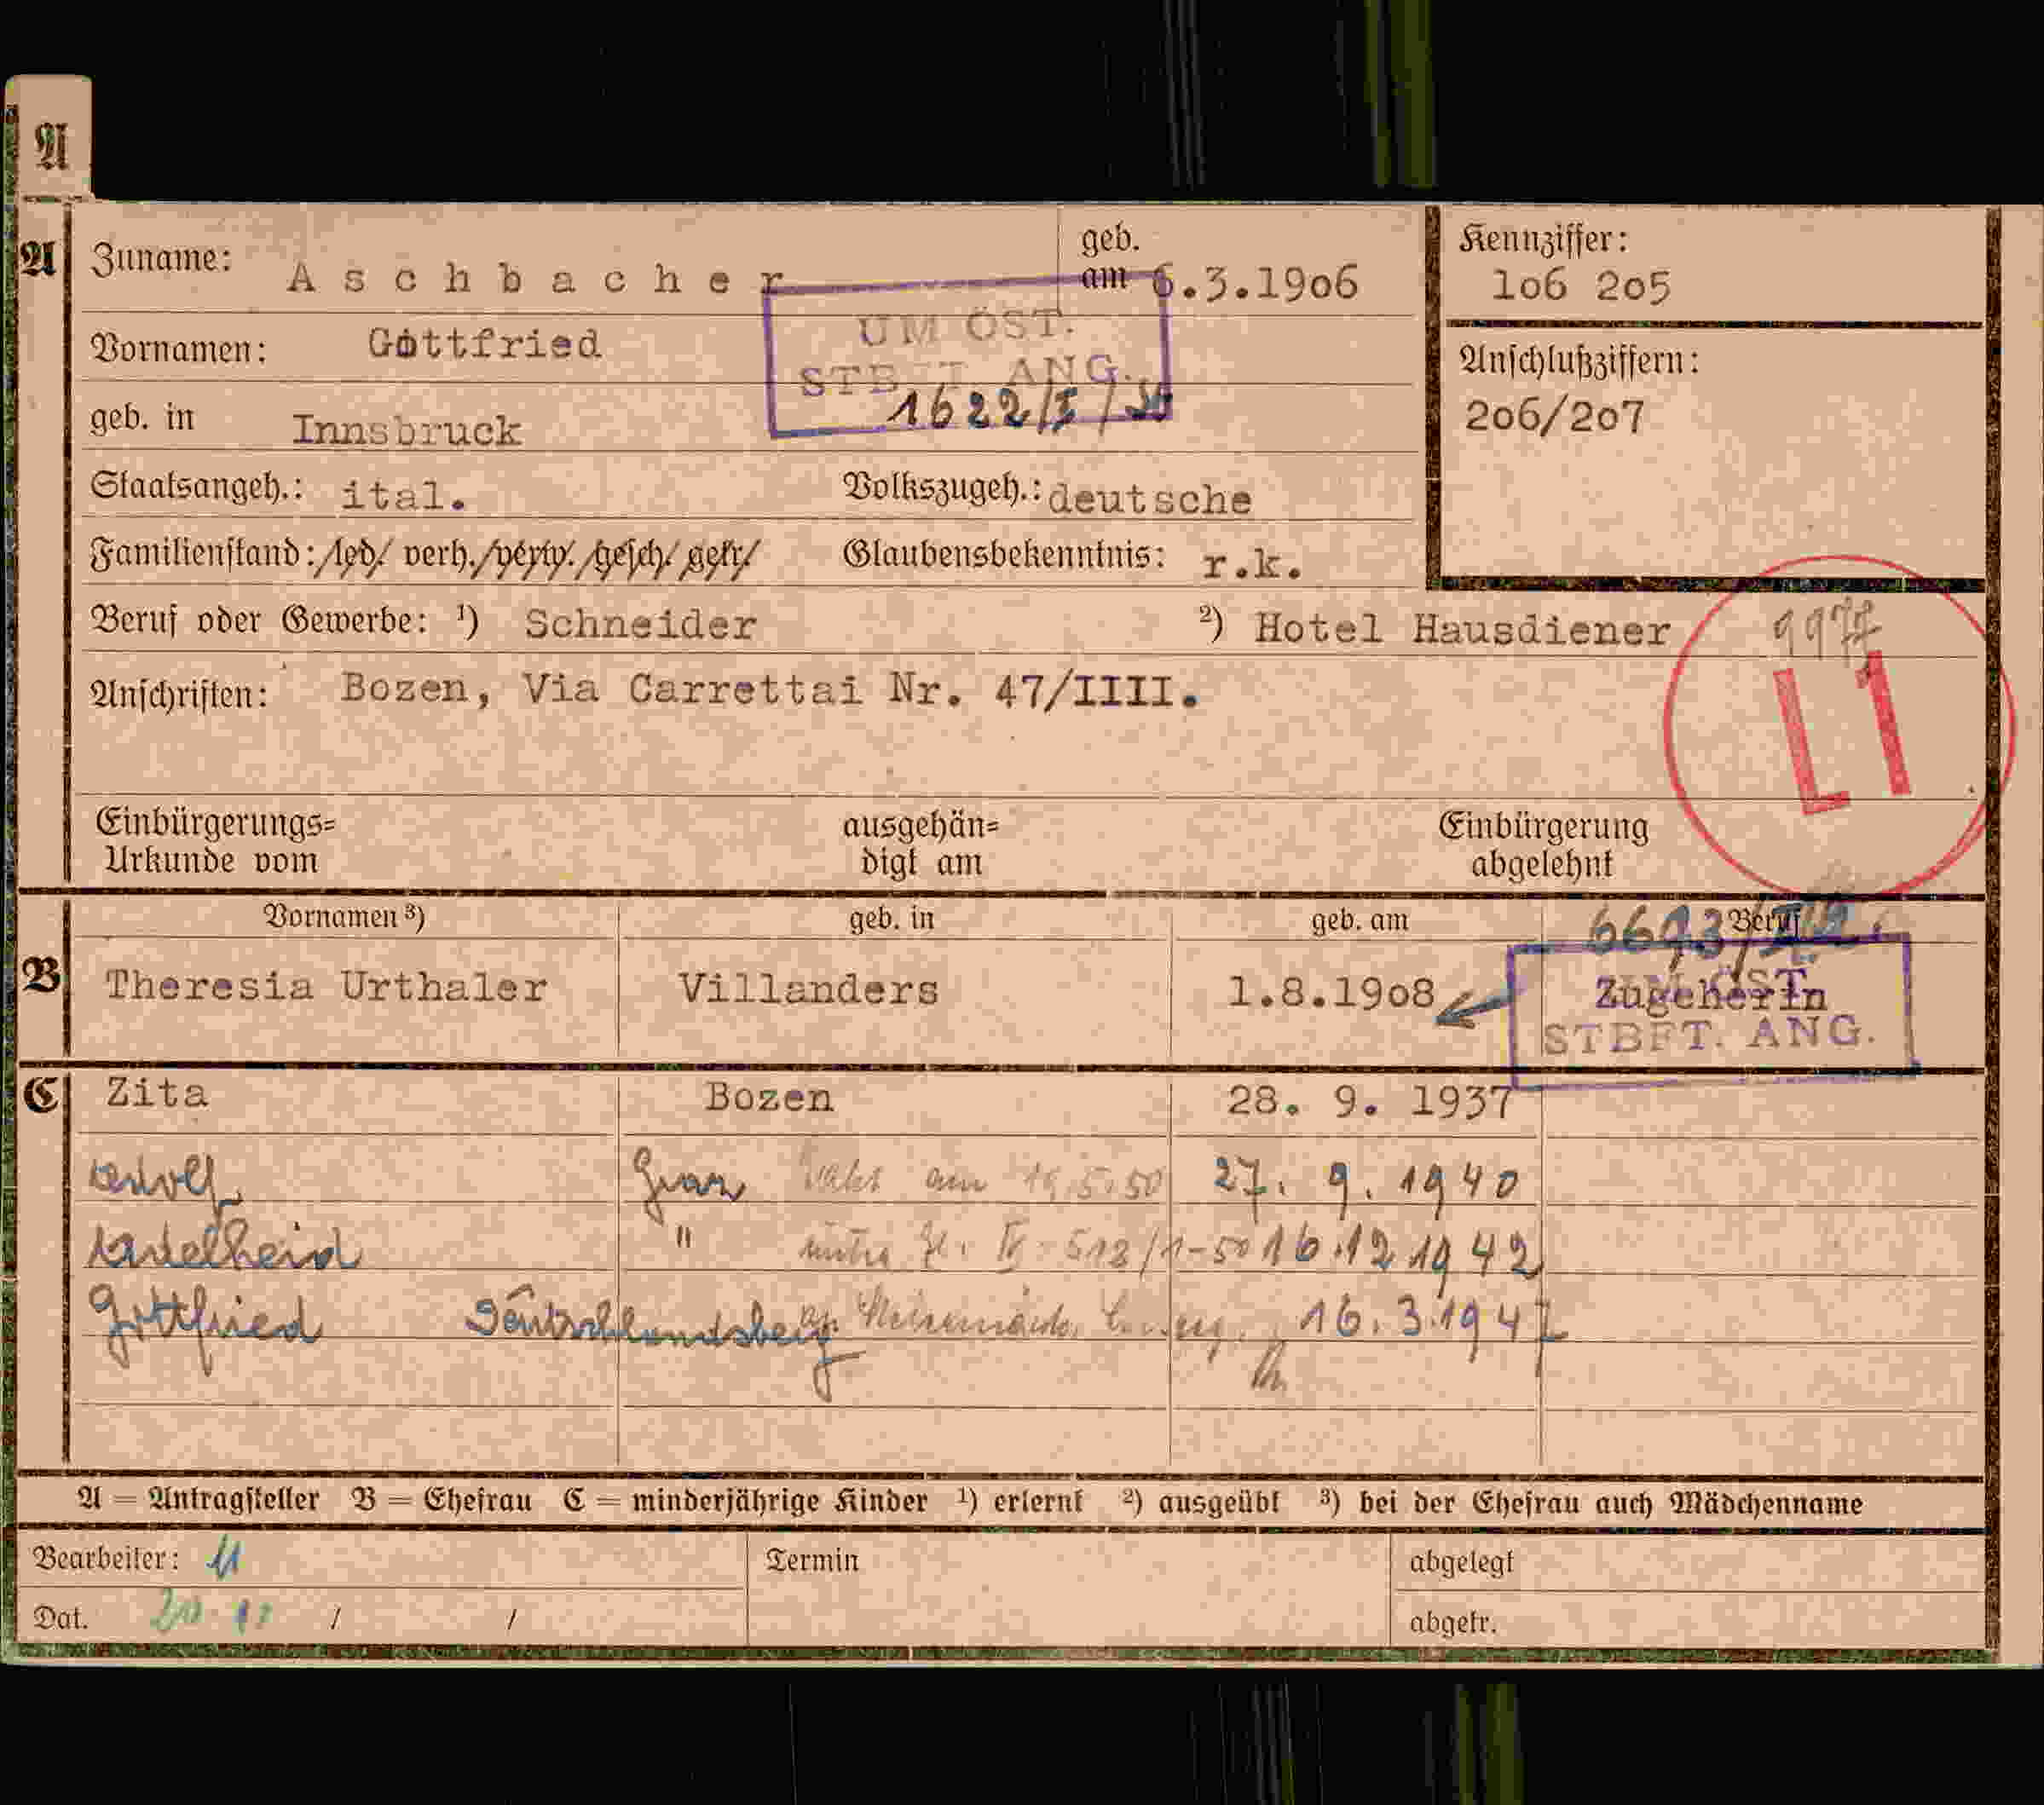 A
A Zuname: Aschbacher geb. am 6.3.1906 Kennziffer: 106 205
UM ÖST.
STBFT. ANG.
1622/I/
Vornamen: Gottfried
Anschlußziffern: 206/207
geb. in Innsbruck
Staatsangeh.: ital. Volkszugeh.: deutsche
Familienstand: /led/ verh./verw./gesch/getr/ Glaubensbekenntnis: r.k.
Beruf oder Gewerbe: 1) Schneider 2) Hotel Hausdiener
L1
Anschriften: Bozen, Via Carrettai Nr. 47/IIII.
Einbürgerungs= ausgehän= Einbürgerung
Urkunde vom digt am abgelehnt
Vornamen 3) geb. in geb. am Beruf
B Theresia Urthaler Villanders 1.8.1908 Zugeherin
UM ÖST.
STBFT. ANG.
C Zita Bozen 28. 9. 1937
Adolf Graz am 19.5.50 27. 9. 1940
Adelheid " Zl. IV-513/1-50 16.12 1942
Gottfried Deutschlandsberg 16.3.1947
A = Antragsteller B = Ehefrau C = minderjährige Kinder 1) erlernt 2) ausgeübt 3) bei der Ehefrau auch Mädchenname
Bearbeiter: Termin abgelegt
Dat. / / abgetr.